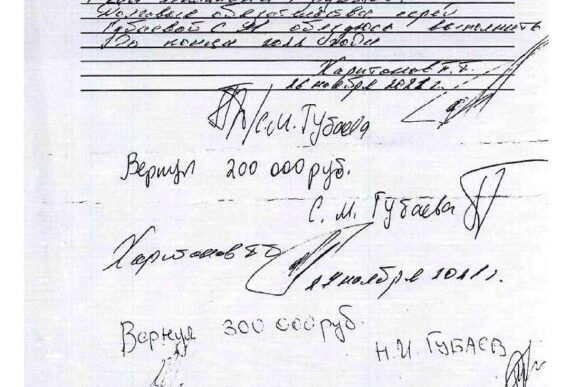 Долговые обязательства перед
Губаевой С.М. обязуюсь выполнить
до конца 2011 года
Харитонов П.Г.
26 ноября 2011 г.
С.М. Губаева
Вернул 200 000 руб.
С. М. Губаева
Харитонов
24 ноября 2011 г.
Вернул 300 000 руб.
Н.И. Губаев